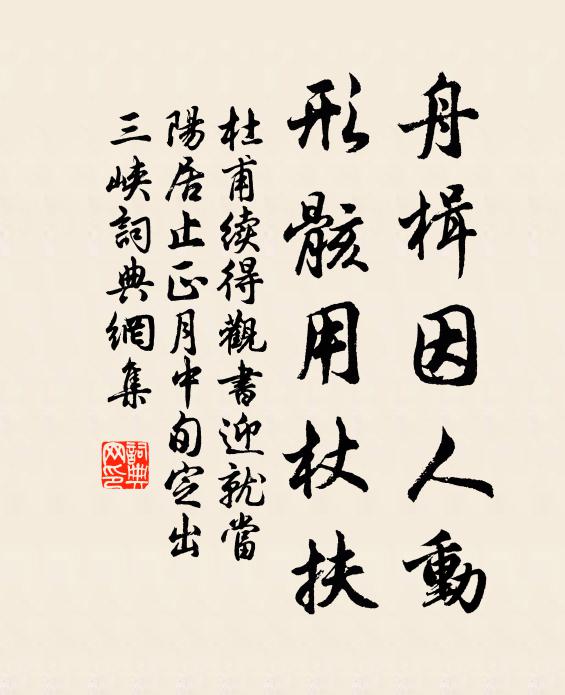 舟楫因人動
形骸用杖扶
杜甫續得觀書迎就當
陽居止正月中旬定出
三峽詞典網集
詞典網印